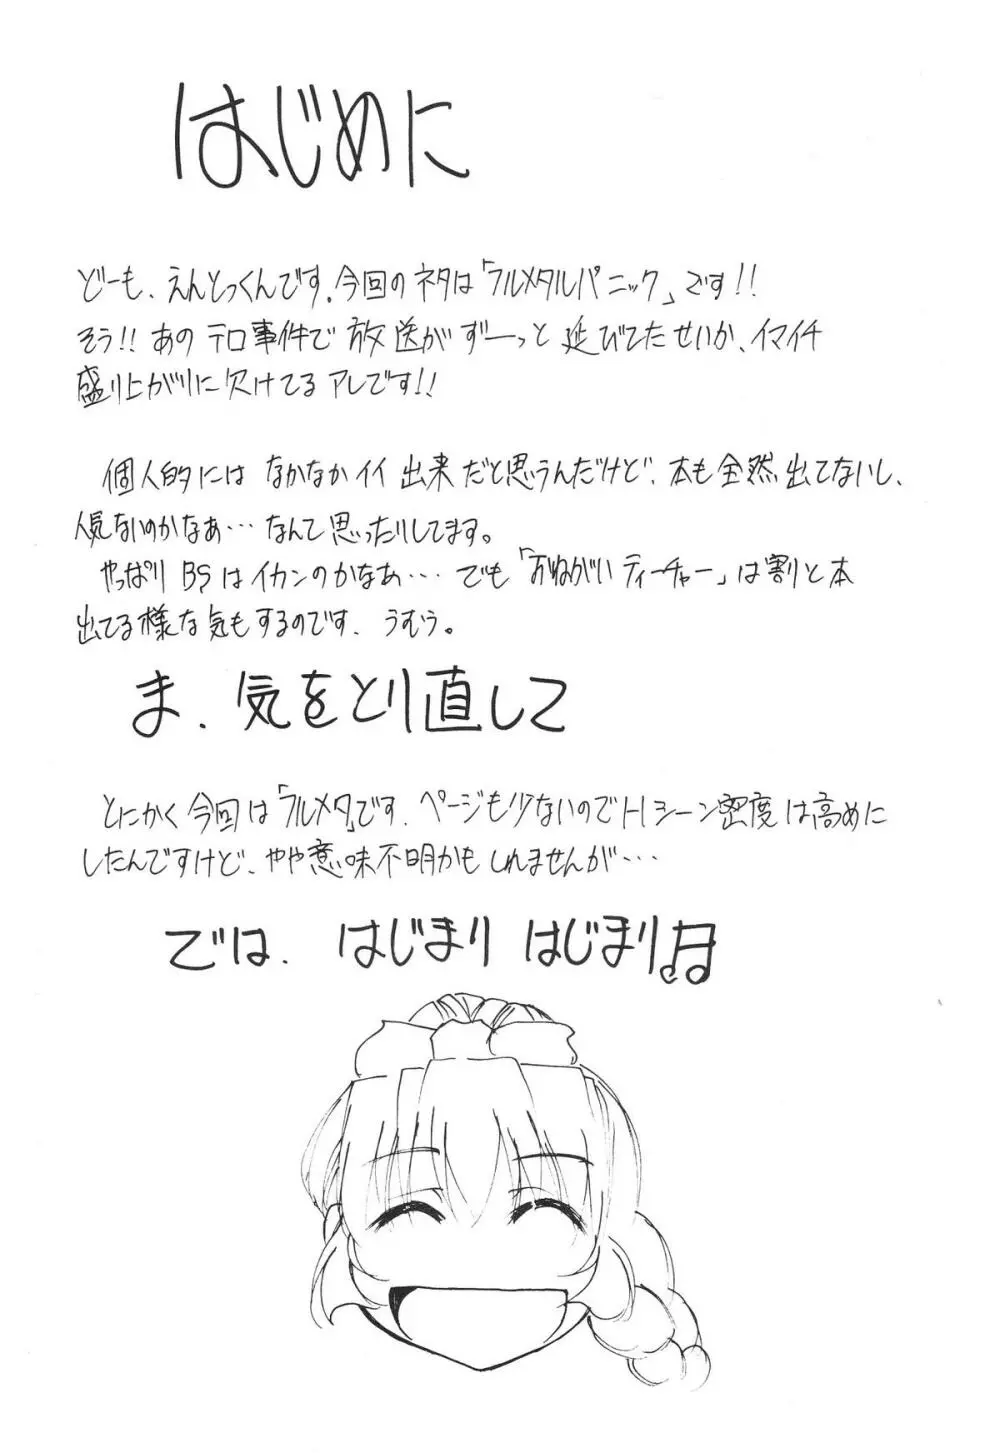 はじめに
どーも、えんとっくんです。今回のネタは「フルメタルパニック」です!!
そう!! あの テロ事件で 放送が ずーっと 延びてたせいか、イマイチ
盛り上がりに欠けてる アレです!!
個人的には なかなかイイ 出来だと思うんだけど、本も全然出てないし、
人気ないのかなぁ… なんて思ったりしてます。
やっぱり BSはイカンのかなあ… でも「おねがいティーチャー」は割と本
出てる様な気もするのです、うむう。
ま、気をとり直して
とにかく今回は「フルメタ」です、ページも少ないのでHシーン密度は高めに
したんですけど、やや意味不明かもしれませんが…
では、はじまり はじまり♫